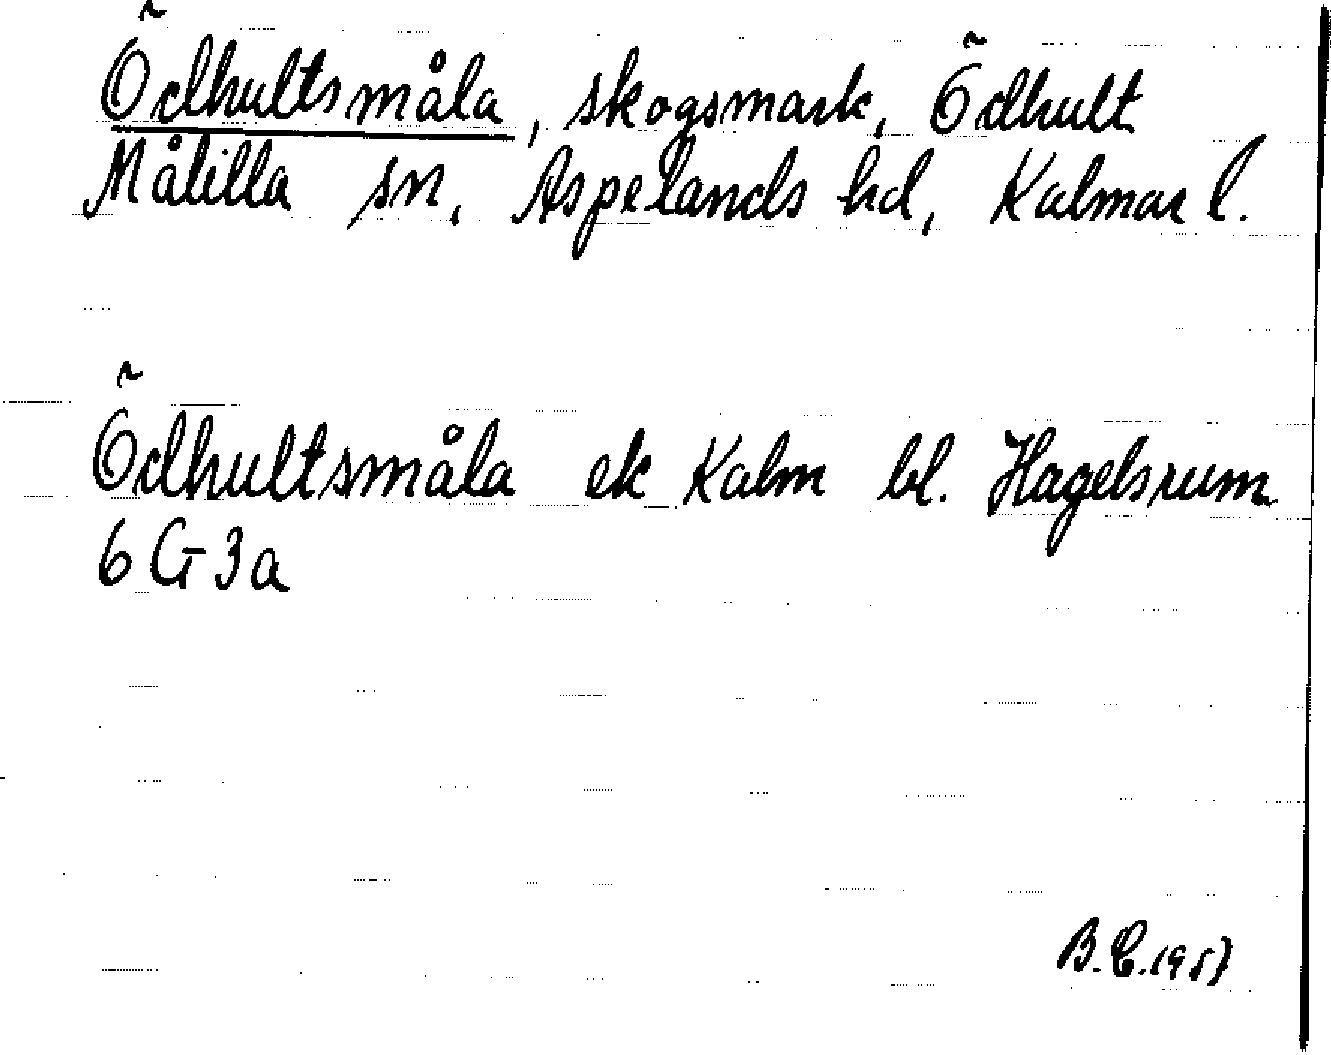 Ödhultsmåla, skogsmark, Ödhult
Målilla sn, Aspelands hd, Kalmar l.
Ödhultsmåla ek Kalm bl. Hagelsrum
6G3a
B.E. 1957